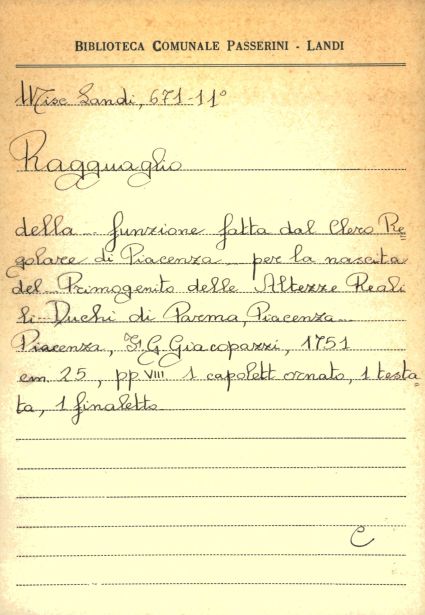 BIBLIOTECA COMUNALE PASSERINI - LANDI
Misc Landi, 671-11°
Ragguaglio
della funzione fatta dal Clero Re=
golare di Piacenza per la nascita
del Primogenito delle Altezze Reali
li Duchi di Parma, Piacenza
Piacenza, G. Giacopazzi, 1751
cm. 25, pp VIII 1 capolett ornato, 1 testa=
ta, 1 finaletto
C